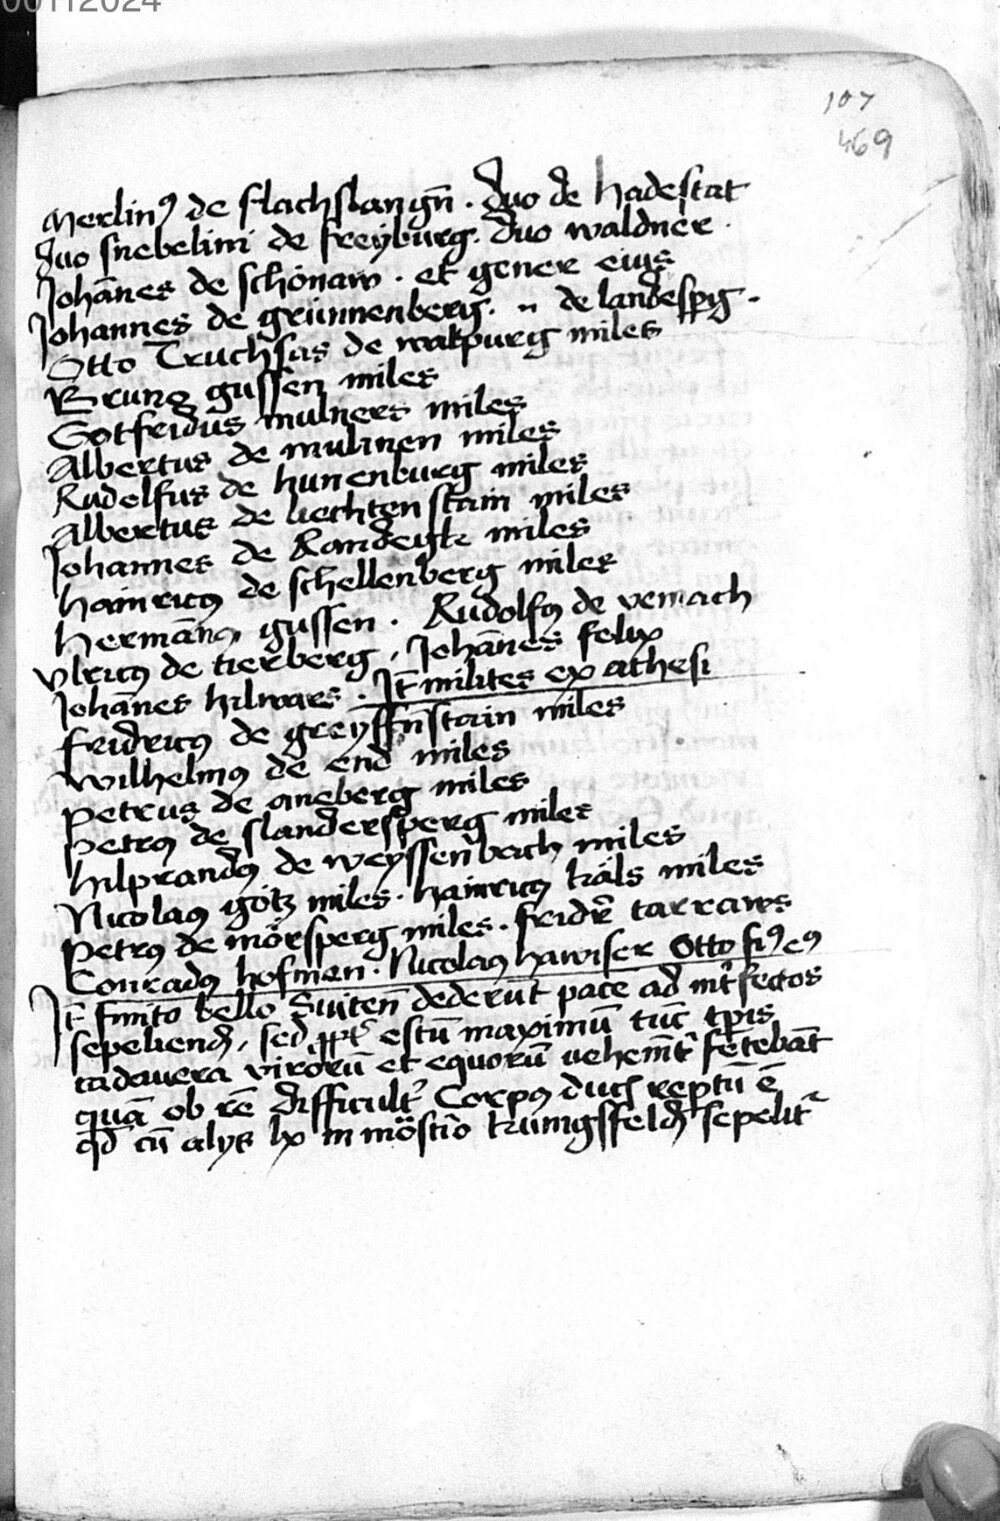 00112024
107
469
Merlinꝯ de flachslangn̄ . duo de hadestat
duo snebelini de freÿburg . duo waldner .
Johānes de schonaw . et gener eius
Johannes de grünnenberg . n̄ de landespg .
Otto Truchsäs de walpurg miles
Bruno gussen miles
Gotfridus mulners miles
Albertus de mulinen miles
Rudolfus de hunenburg miles
Albertus de liechtenstain miles
Johannes de Randegk miles
hainricꝯ de schellenberg miles
Hermānꝯ gussen . Rudolfꝯ de vemach
vlricꝯ de tierberg , Johānes felix
Johānes hilwars . Jt̄ milites ex athesi
fridricꝯ de greyffn̄stain miles
Wilhelmꝯ de end miles
Petrus de aneberg miles
Petrꝯ de slandersperg miles
hilprandꝯ de weyssenbach miles
Nicolaꝯ götz miles . hainricꝯ käls miles
Petrꝯ de mörsperg miles . fridr̄ tarraws
Conradꝯ hofman . Nicolaꝯ hawser Otto fiꝯ eꝯ
Jt̄ finito bello Suiten̄ dederūt pacē ad int̄fectos
sepeliend , sed ꝓpt̄ estū maximū tūc tꝑis
cadauera virorū et equorū vehemēt̄ fetebāt
quā ob rē difficult̄ Corpꝯ ducis reptū ē
qd̄ cū alijs lx in mōstio kunigsfeld sepelit̄